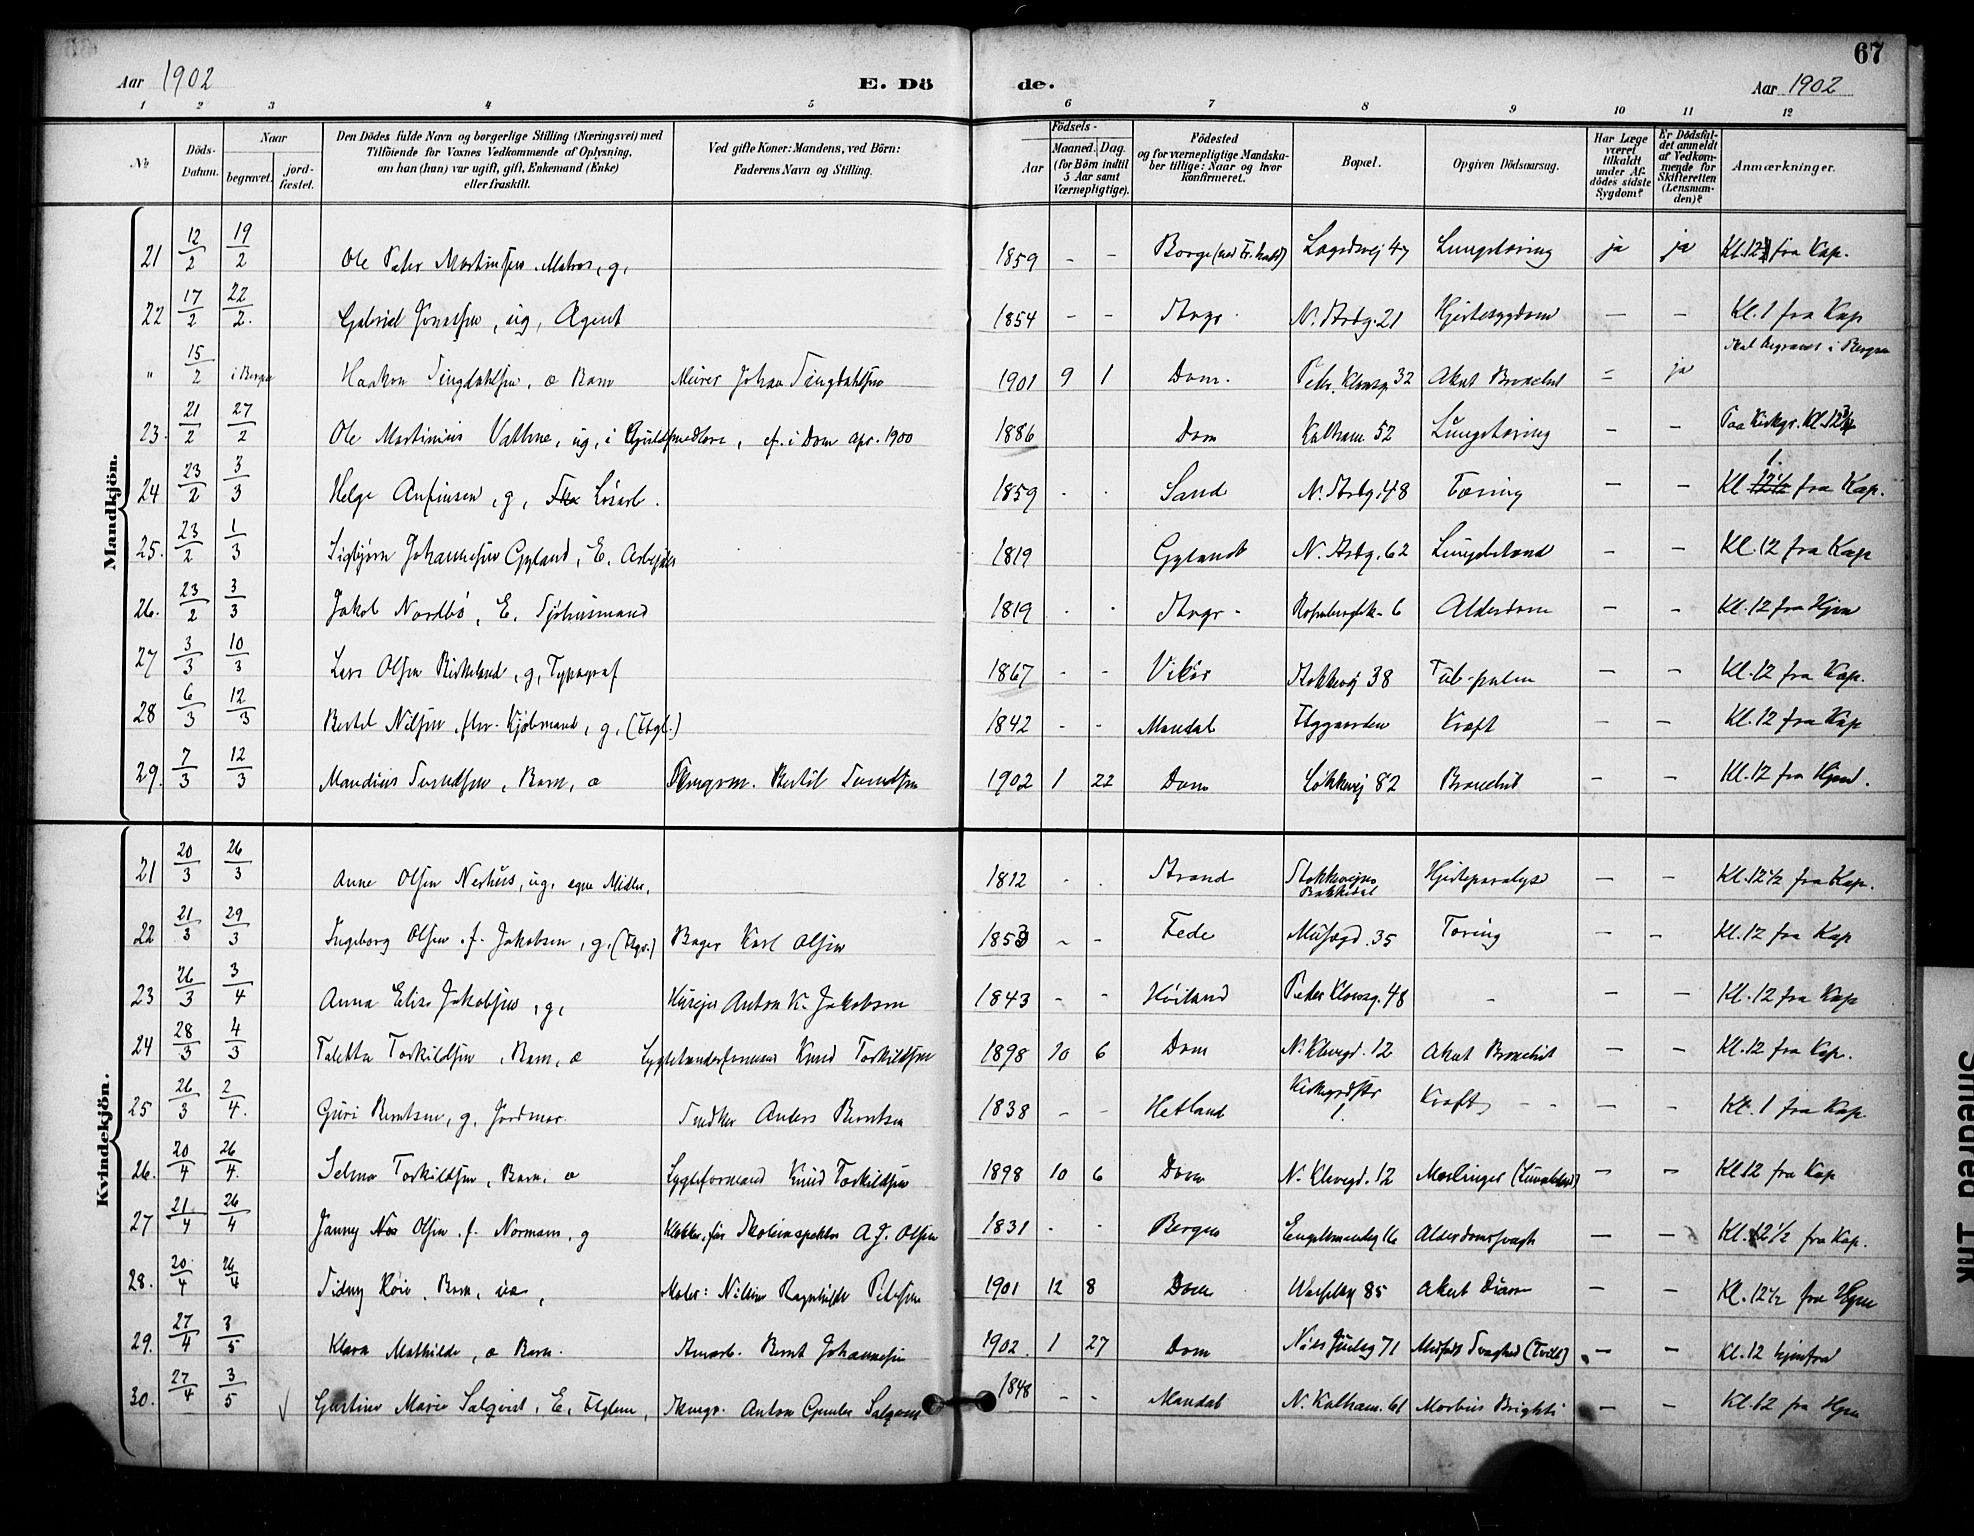 67
Aar 1902
E. Dö
de.
Aar 1902
1 2 3 4 5 6 7 8 9 10 11 12
No
Döds-Datum.
Naar
begravet.
jord-fæstet.
Den Dödes fulde Navn og borgerlige Stilling (Næringsvei) med
Tilföiende for Voxnes Vedkommende af Oplysning,
om han (hun) var ugift, gift, Enkemand (Enke)
eller fraskilt.
Ved gifte Koner: Mandens, ved Börn:
Faderens Navn og Stilling.
Födsels-
Aar
Maaned. Dag.
(for Börn indtil
5 Aar samt
Værnepligtige).
Födested
og for værnepligtige Mandska-
ber tillige: Naar og hvor
konfirmeret.
Bopæl.
Opgiven Dödsaarsag.
Har Læge
været
tilkaldt
under Af-
dödes sidste
Sygdom?
Er Dödsfal-
det anmeldt
af Vedkom-
mende for
Skifteretten
(Lensman-
den)?
Anmærkninger.
Mandkjön.
21 12/2 19/2 Ole Peter Martinsen Matros, g, 1859 - - Borge Lagårdsvej 47 Lungetæring ja ja Kl. 12 fra Kap.
22 17/2 22/2. Gabriel Jonassen, ug, Agent 1854 - - Stvgr. N. Strdg. 21 Hjertesygdom - - Kl. 1 fra Kap
" 15/2 i Bergen Haakon Tingdahlsen, æ Barn Murer Johan Tingdahlsen 1901 9 1 Dom. Petr. Klowsg. 32 Akut Bronchit = ja Skal begraves i Bergen
23. 21/2 27/2 Ole Martinius Vathne, ug, i Guldsmedlære, cf. i Dom apr. 1900 1886 Dom Kalham. 52 Lungetæring - - Paa Kirkgr. Kl. 12 3/4
24 23/2 3/3 Helge Anfinsen, g, Løsarb. 1859 . . Sand N. Strdg. 48 Tæring - - Kl 12 1/2 1. fra Kap.
25. 23/2 1/3 Sigbjørn Johannesen Gyland, E. Arbejder 1819 Gyland N. Strdg. 62 Lungebetænd - - Kl. 12 fra Kap
26. 23/2 3/3 Jakob Nordbö, E. Sjöhusmand 1819 . . Stvgr - 6 Alderdom - - Kl. 12 fra Hjem
27 3/3 10/3 Lars Olsen Birkeland, g, Typograf 1867 - - Vikör Stokkevej 38 Tub. pulm - - Kl. 12 fra Kap.
28 6/3 12/3 Bertel Nilsen, fhv. Kjöbmand, g, 1842 - - Mandal Kræft - - Kl. 12 fra Kap
29. 7/3 12/3 Mandius Svendsen, Barn, æ Bertil Svendsen 1902 1 22 Dom Løkkevej 82 Bronchit - - Kl. 12 fra Hjem.
Kvindekjön.
21 20/3 26/3 Anne Olsen Nerhus, ug. egne Midler. 1812 - . Strand Stokkevejens Bakkedal Hjerteparalyse - - Kl. 12 1/2 fra Kap.
22 21/3 29/3 Ingeborg Olsen f. Jakobsen, g. Bager Karl Olsen 1853 - - Fede Musægd. 35 Tæring - - Kl. 12 fra Kap
23 26/3 3/4 Anna Elise Jakobsen, g, Husejer Anton K. Jakobsen 1843 - - Höiland Peder Klowsg. 48 - - - Kl. 12 fra Kap
24 28/3 4/3 Taletta Torkildsen, Barn, æ Lygtetænderformand Knud Torkildsen 1898 10 6 Dom N. Klevegd. 12 Akut Bronchit - - Kl. 12 fra Kap.
25 26/3 2/4. Guri Berntsen, g, Jordmor. Snedker Anders Berntsen 1838 - - Hetland Kirkegrdstr 1. Kræft - - - - Kl. 1 fra Kap
26. 20/4 26/4. Selma Torkildsen, Barn, æ Lygteformand Knud Torkildsen 1898 10 6 Dom N. Klevegd. 12 Meslinger - - Kl 12 fra Kap
27 21/4 26/4 Janny Olsen f. Normann, g Klokker, før Skoleinspektør A. J. Olsen 1831 . . Bergen 16 Alderdomssvagh - - Kl. 12 1/2 fra Kap.
28. 20/4 26/4 Sidny Roie, Barn, uæ, Moder: Nilsine Ragnhilde Petersen 1901 12 8 Dom 85 Akut Diarre - - Kl. 12 1/2 fra Hjem
29. 27/4 3/5 Klara Mathilde, æ Barn. Bernt Johannesen 1902. 1 27 Dom Nils Juelsg 71 Medfødt Svaghed (Tvill) - - Kl. 12 hjemfra
30. 27/4 3/5 Gustine Marie Salqvist, E, Anton Salqvist 1848 - - Mandal N. Kalham. 61 Morbus Brighti - - Kl. 12 fra Hjem
Smedred Ink